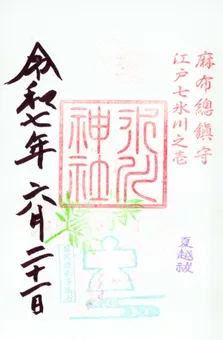 麻布總鎮守
江戸七氷川之壱
氷川神社
夏越祓
令和七年六月二十一日